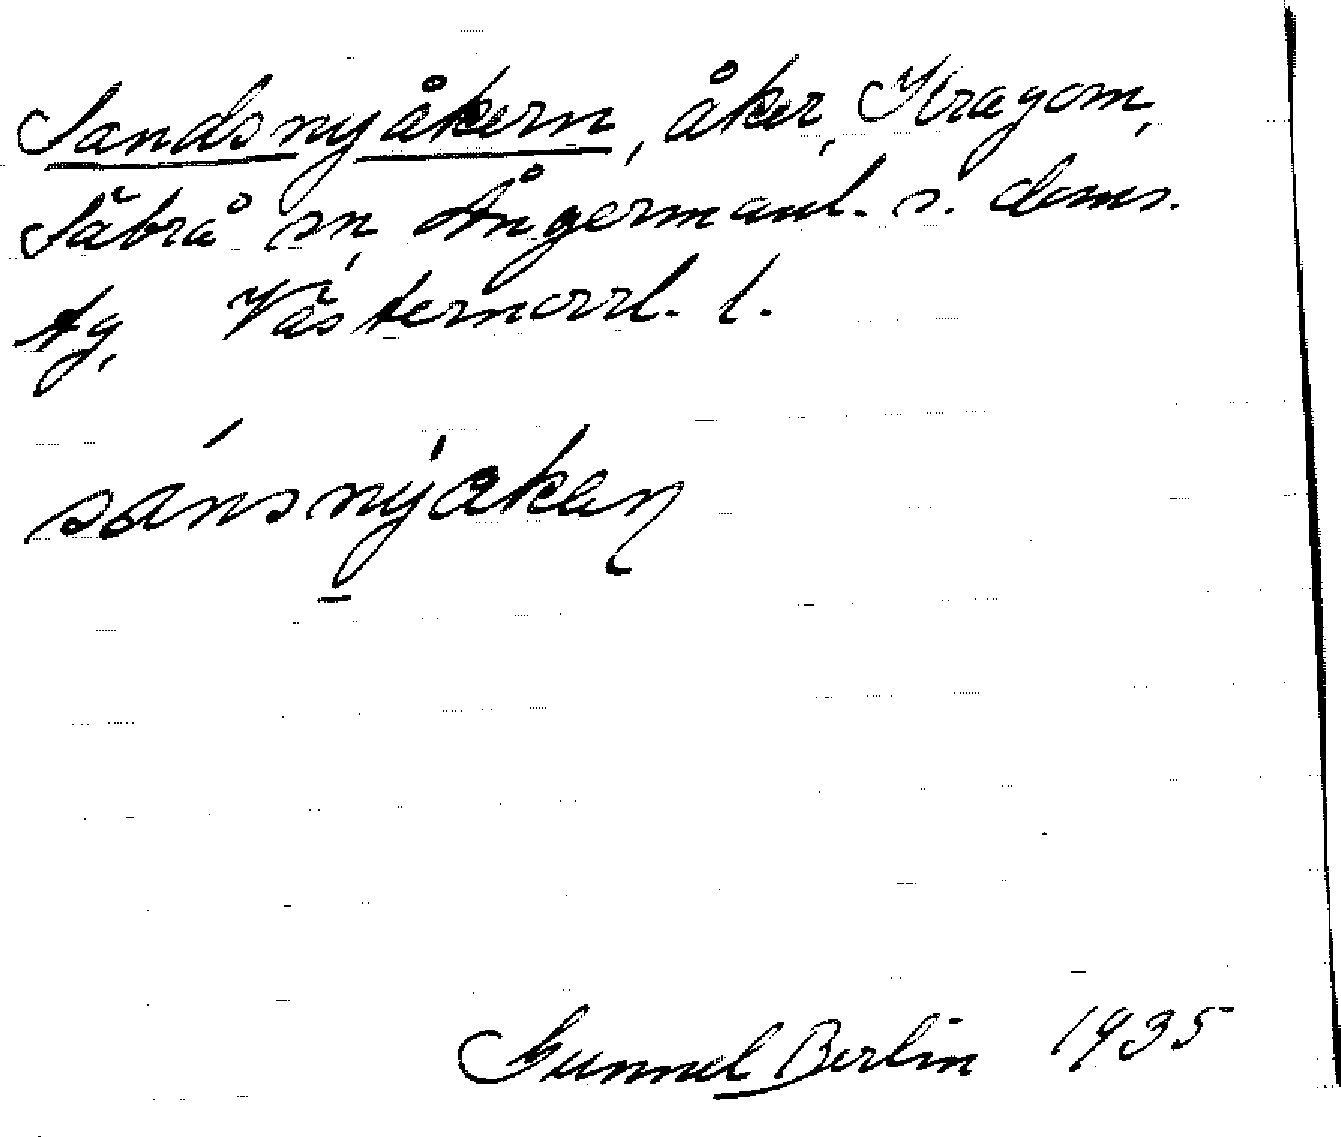 Sandsnyåkern, åker, Kragom,
Säbrå sn, Ångermanl. s. doms.
tg, Västernorrl. l.
sánsnýakaɲ
Gunnel Berlin 1935